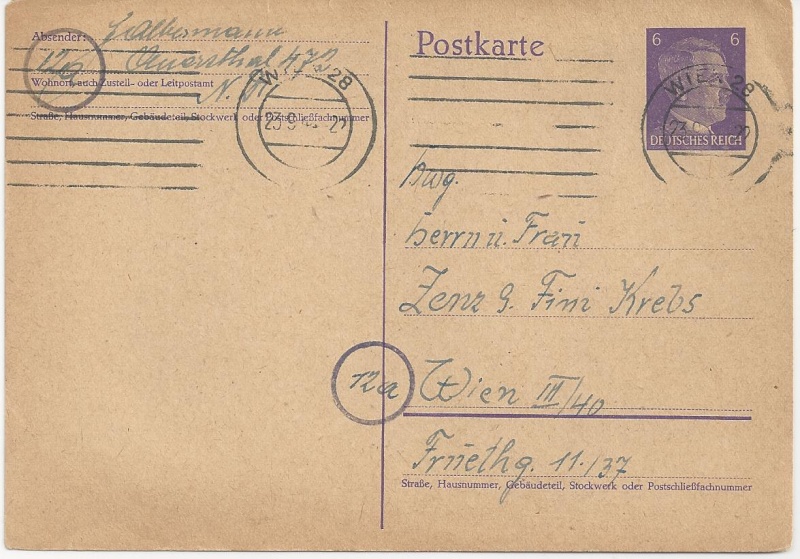 Absender:
Halbermann
Auersthal 472
12a
Wohnort, auch Zustell- oder Leitpostamt
N.D.
Straße, Hausnummer, Gebäudeteil, Stockwerk oder Postschließfachnummer
WIEN 28
23.9
Postkarte
6 6
DEUTSCHES REICH
WIEN 28
23.9
Herrn u. Frau
Zenz & Fini Krebs
12a Wien III/40
Fruethg. 11/37
Straße, Hausnummer, Gebäudeteil, Stockwerk oder Postschließfachnummer